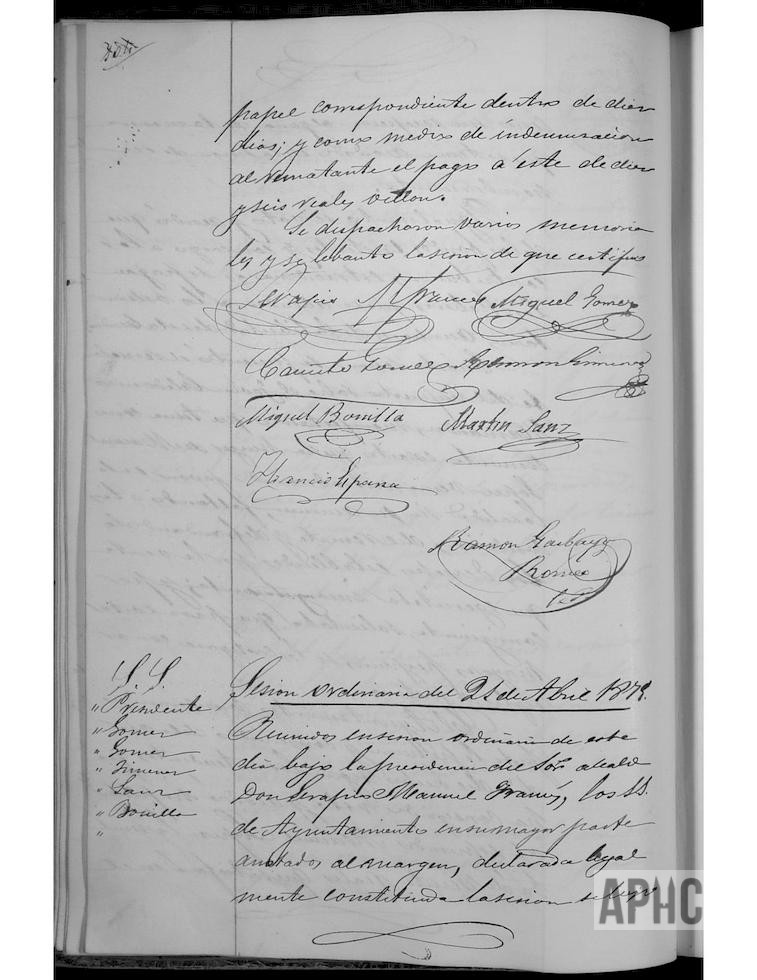 papel correspondiente dentro de diez
dias; y como medio de indemnizacion
al rematante el pago á este de diez
y seis reales vellon.
Se despacharon varios memoria
les y se lebantó la sesion de que certifico
Serapio M Frances Miguel Gomez
Canuto Gomez Ramon Gimenez
Miguel Bonilla Martin Sanz
Francisco Esparza
Ramon Garbayo
Romeo
S. S.
" Presidente
" Gomez
" Gomez
" Jimenez
" Sanz
" Bonilla
"
Sesion ordinaria del 21 de Abril 1879.
Reunidos en sesion ordinaria de este
dia bajo la presidencia del Sor. alcalde
Don Serapio Manuel Francés, los SS.
de Ayuntamiento en su mayor parte
anotados al margen, declarada legal
mente constituida la sesion se leyo
APHC